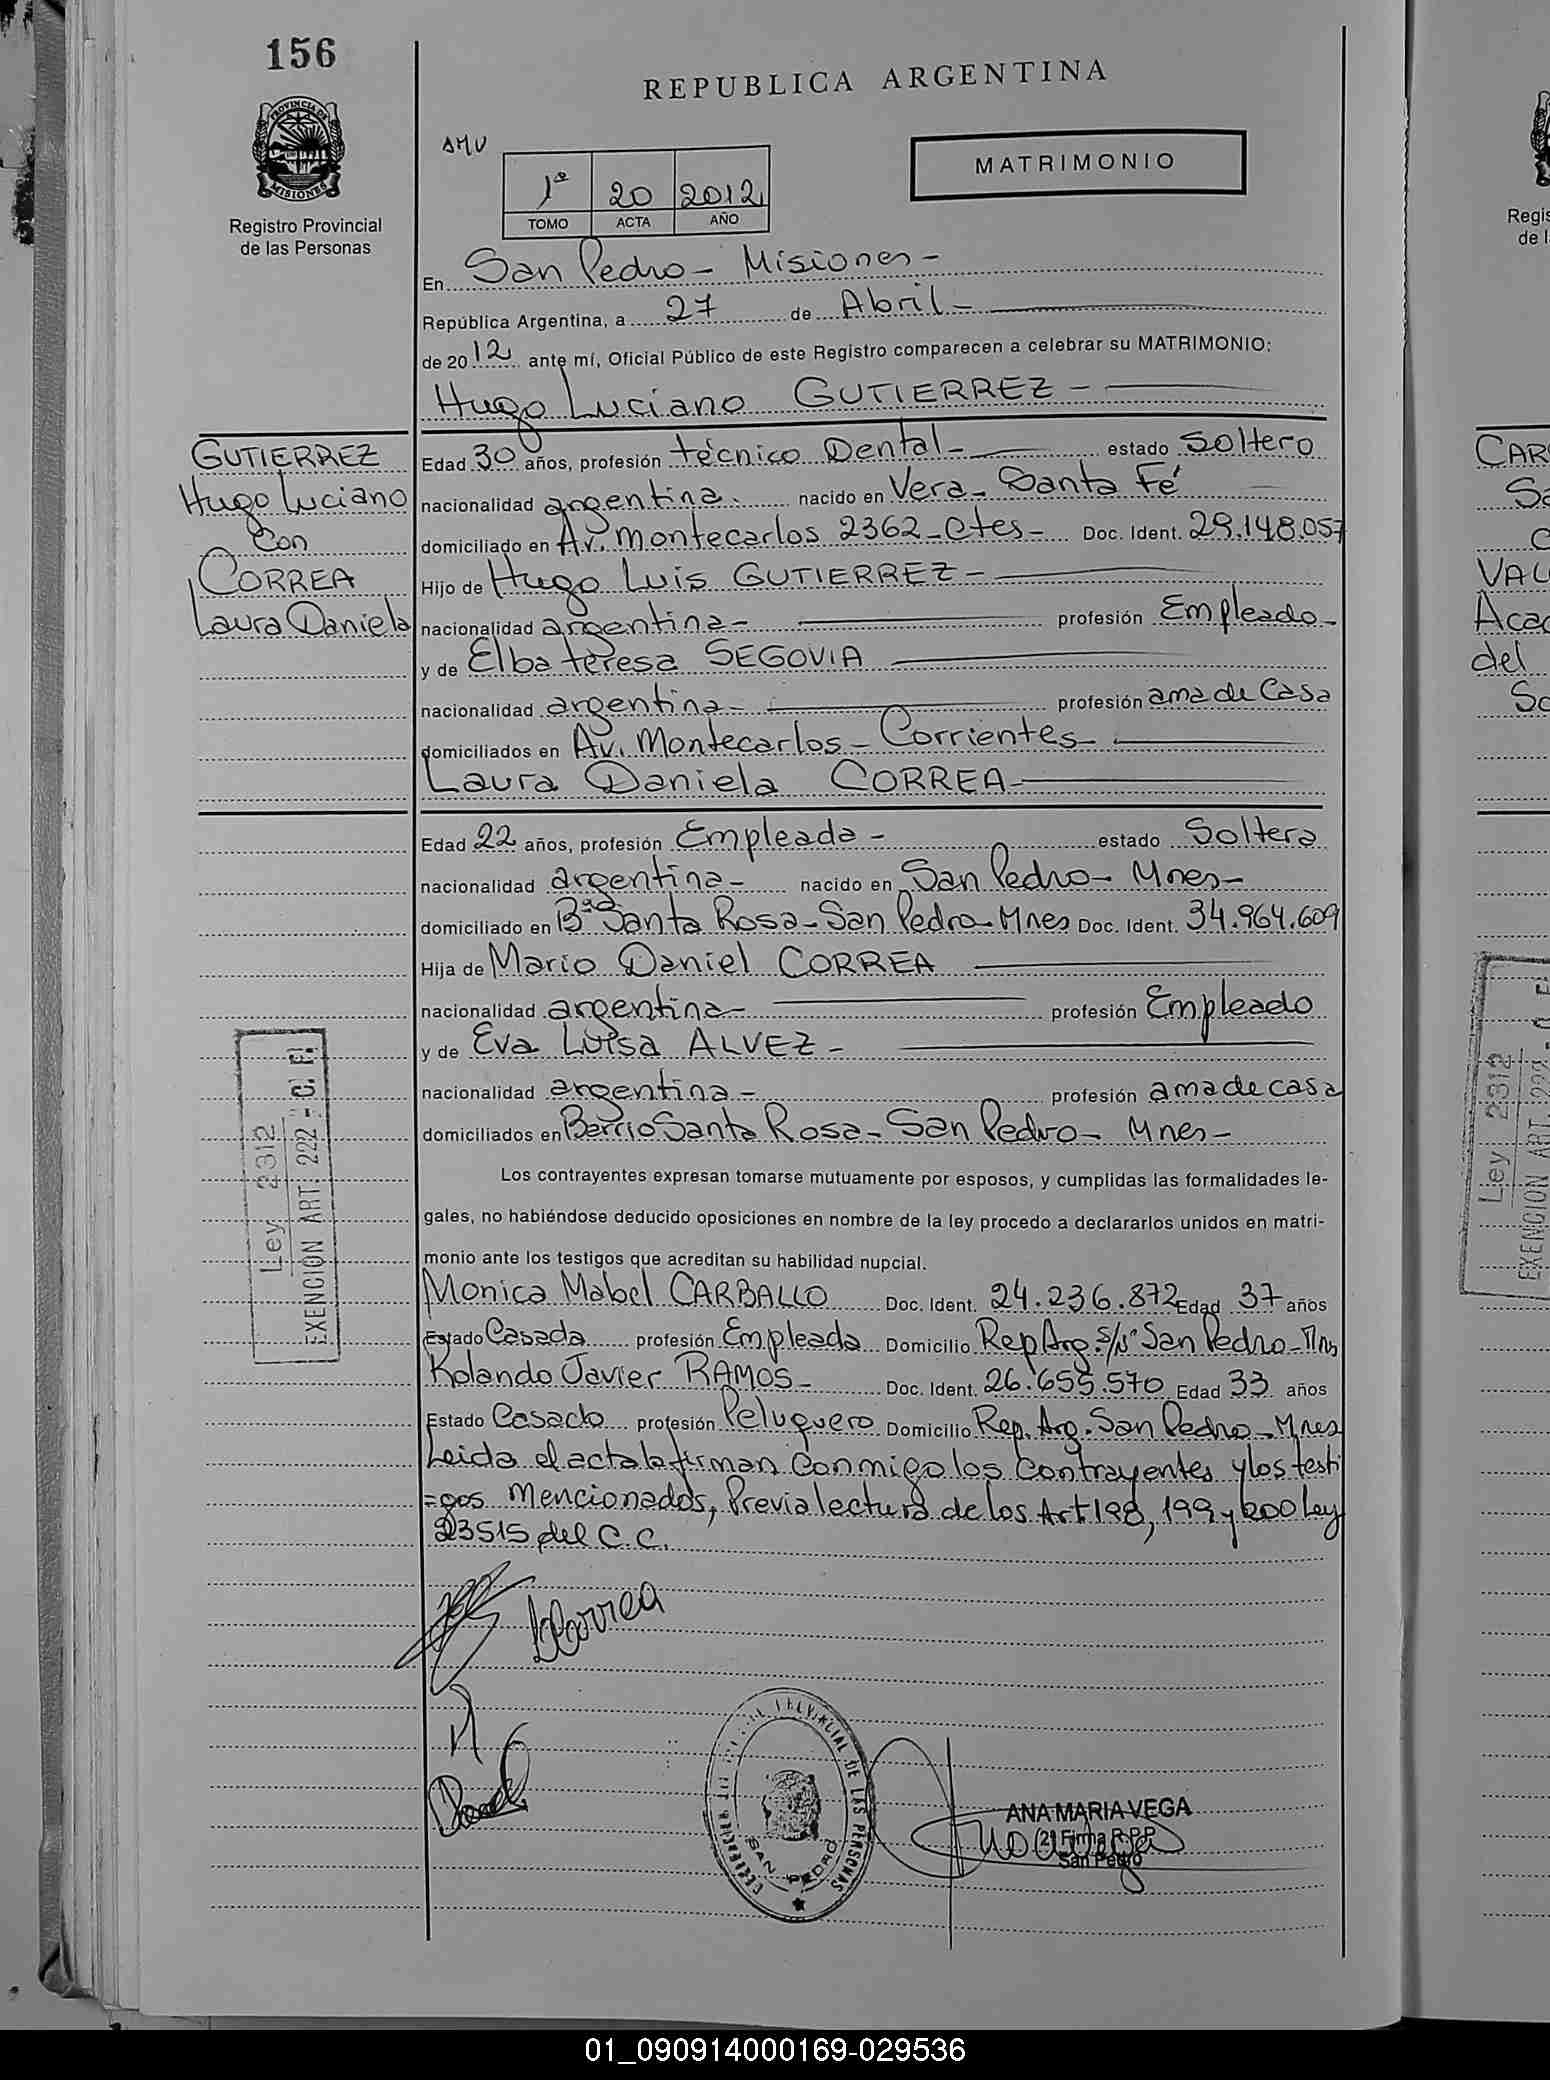 156
REPUBLICA ARGENTINA
PROVINCIA DE
MISIONES
Registro Provincial
de las Personas
AMV
MATRIMONIO
1º 20 2012
TOMO ACTA AÑO
En San Pedro - Misiones -
República Argentina, a 27 de Abril -
de 2012 ante mí, Oficial Público de este Registro comparecen a celebrar su MATRIMONIO:
Hugo Luciano GUTIERREZ -
GUTIERREZ
Hugo Luciano
Con
CORREA
Laura Daniela
Edad 30 años, profesión técnico Dental - estado Soltero
nacionalidad argentina. nacido en Vera - Santa Fé
domiciliado en Av. Montecarlos 2362 - Ctes - Doc. Ident. 29.148.057
Hijo de Hugo Luis GUTIERREZ -
nacionalidad argentina - profesión Empleado -
y de Elba teresa SEGOVIA
nacionalidad argentina - profesión ama de Casa
domiciliados en Av. Montecarlos - Corrientes -
Laura Daniela CORREA -
Edad 22 años, profesión Empleada - estado Soltera
nacionalidad argentina - nacido en San Pedro - Mnes -
domiciliado en Bº Santa Rosa - San Pedro - Mnes Doc. Ident. 34.964.609
Hija de Mario Daniel CORREA
nacionalidad argentina - profesión Empleado
y de Eva Luisa ALVEZ -
nacionalidad argentina - profesión ama de casa
domiciliados en Barrio Santa Rosa - San Pedro - Mnes -
Ley 2312
EXENCION ART. 222 - C. F.
Los contrayentes expresan tomarse mutuamente por esposos, y cumplidas las formalidades le-
gales, no habiéndose deducido oposiciones en nombre de la ley procedo a declararlos unidos en matri-
monio ante los testigos que acreditan su habilidad nupcial.
Monica Mabel CARBALLO Doc. Ident. 24.236.872 Edad 37 años
Estado Casada profesión Empleada Domicilio Rep Arg. s/Nº San Pedro - Mns
Rolando Javier RAMOS - Doc. Ident. 26.655.570 Edad 33 años
Estado Casado profesión Peluquero Domicilio Rep. Arg. San Pedro - Mnes
Leida el acta la firman Conmigo los Contrayentes y los testi
=gos Mencionados, Previa lectura de los Art 198, 199 y 200 Ley
23515 del C.C.
LCorrea
PROVINCIAL DE LAS PERSONAS
SAN PEDRO
ANA MARIA VEGA
(2) Firma R.P.P.
San Pedro
Regis
de l
CAR
Sa
C
VAL
Acac
del
So
Ley 2312
EXENCION ART. 222 - C. F.
01_090914000169-029536